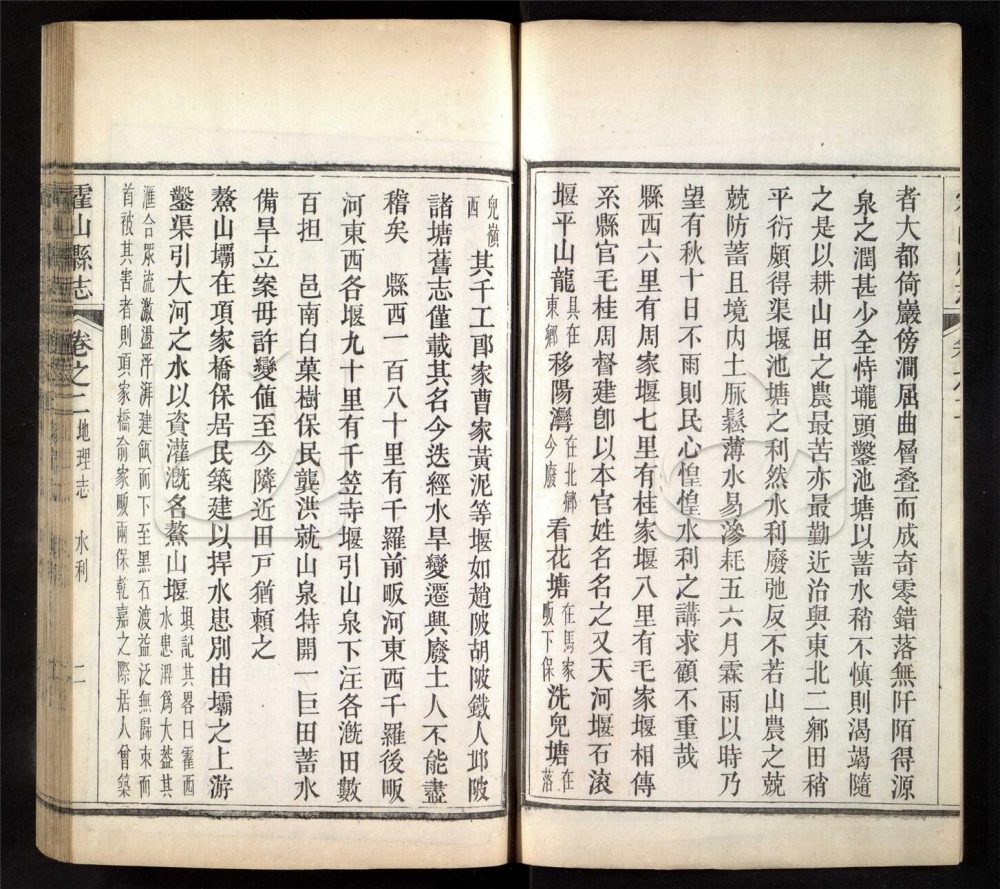 者大都倚巖傍澗屈曲層叠而成奇零錯落無阡陌得源
泉之潤甚少全恃壠頭鑿池塘以蓄水稍不慎則渴竭隨
之是以耕山田之農最苦亦最勤近治與東北二鄉田稍
平衍頗得渠堰池塘之利然水利廢弛反不若山農之兢
兢防蓄且境內土脈鬆薄水易滲耗五六月霖雨以時乃
望有秋十日不雨則民心惶惶水利之講求顧不重哉
縣西六里有周家堰七里有桂家堰八里有毛家堰相傳
系縣官毛桂周督建卽以本官姓名名之又天河堰石滾
堰平山龍具在東鄉移陽灣在北鄉今廢看花塘在馬家畈下保洗兒塘在落
兒嶺西其千工郿家曹家黃泥等堰如趙陂胡陂鐵人邛陂
諸塘舊志僅載其名今迭經水旱變遷興廢土人不能盡
稽矣 縣西一百八十里有千羅前畈河東西千羅後畈
河東西各堰九十里有千笠寺堰引山泉下注各漑田數
百担 邑南白菓樹保民龔洪就山泉特開一巨田蓄水
備旱立案毋許變値至今隣近田戶猶頼之
鰲山壩在項家橋保居民築建以捍水患別由壩之上游
鑿渠引大河之水以資灌漑名鰲山堰壩記其畧曰霍西水患淠爲大葢其
滙合眾流激盪浮湃建瓴而下至黑石渡益泛無歸束而
首被其害者則項家橋俞家畈兩保乾嘉之際居人曾築
霍山縣志 卷之二 地理志 水利 二